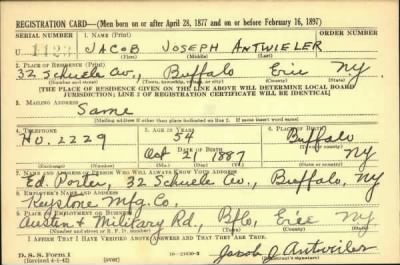 REGISTRATION CARD—(Men born on or after April 28, 1877 and on or before February 16, 1897)
SERIAL NUMBER 1. NAME (Print)
U 1423 JACOB JOSEPH ANTWIELER
2. PLACE OF RESIDENCE (Print)
32 Schuele Av., Buffalo Erie NY.
(Number and street) (Town, township, village, or city) (County) (State)
[THE PLACE OF RESIDENCE GIVEN ON THE LINE ABOVE WILL DETERMINE LOCAL BOARD
JURISDICTION; LINE 2 OF REGISTRATION CERTIFICATE WILL BE IDENTICAL]
3. MAILING ADDRESS
Same
[Mailing address if other than place indicated on line 2. If same insert word same]
4. TELEPHONE 5. AGE IN YEARS 6. PLACE OF BIRTH
54 Buffalo
HU. 2229 DATE OF BIRTH
Oct 21 1887 NY
7. NAME AND ADDRESS OF PERSON WHO WILL ALWAYS KNOW YOUR ADDRESS
Ed. Porter, 32 Schuele Av., Buffalo, NY
8. EMPLOYER'S NAME AND ADDRESS
Keystone Mfg. Co.
9. PLACE OF EMPLOYMENT OR BUSINESS
Austin & Military Rd., Bflo, Erie NY
(Number and street or R. F. D. number) (Town) (County) (State)
I AFFIRM THAT I HAVE VERIFIED ABOVE ANSWERS AND THAT THEY ARE TRUE.
D. S. S. Form 1
(Revised 4-1-42) Jacob J Antweiler